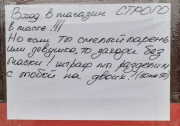 Вход в магазин СТРОГО
в маске!!!
Но если ты смелый парень
или девушка, то заходи без
маски! штраф мы разделим
с тобой на двоих!